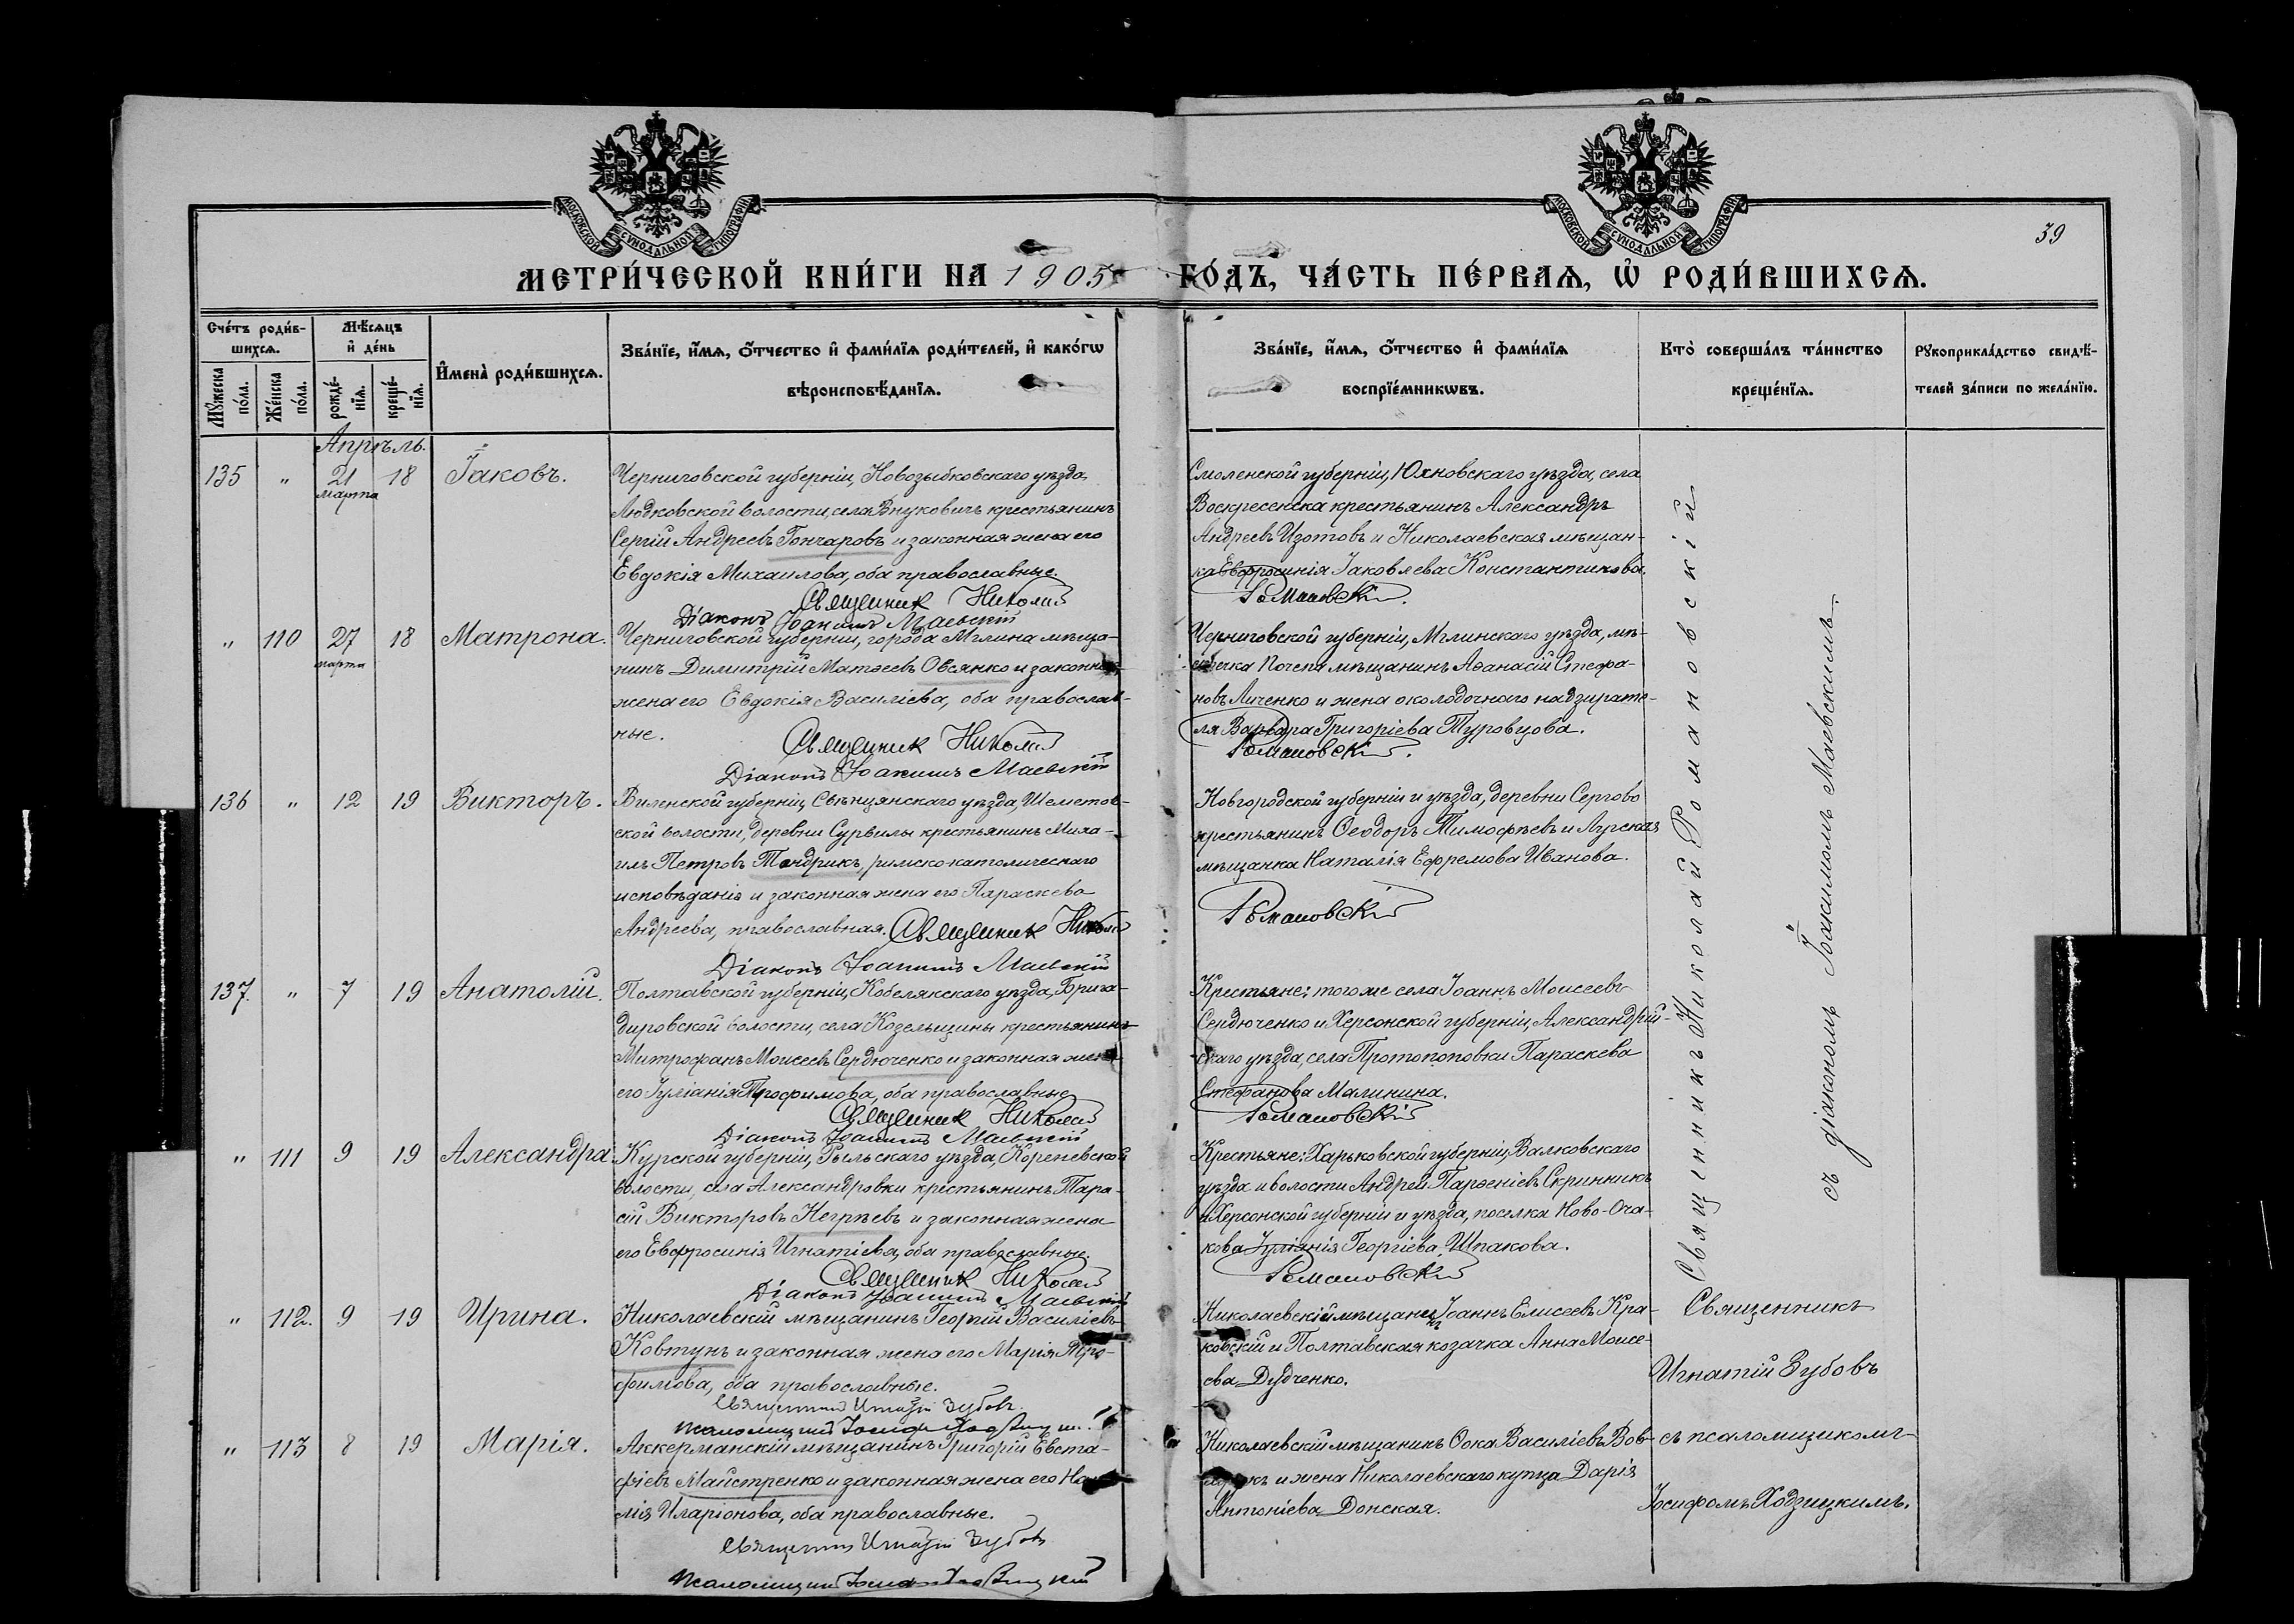 МОСКОВСКОЙ СУНОДАЛЬНОЙ ТИПОГРАФІИ
МОСКОВСКОЙ СУНОДАЛЬНОЙ ТИПОГРАФІИ
39
МЕТРИ́ЧЕСКОЙ КНИ́ГИ НА 1905 ГО́ДЪ, ЧА́СТЬ ПЕ́РВАѦ, Ѡ҆ РОДИ́ВШИХСѦ.
Сче́тъ роди́в-
шихсѧ.
Мꙋ́жеска по́ла.
Же́нска по́ла.
Мѣ́сѧцъ
и҆ де́нь
рожде́-
нїѧ.
креще́-
нїѧ.
И҆мена̀ роди́вшихсѧ.
Зва́нїе, и҆́мѧ, ѻ҆́тчество и҆ фами́лїѧ роди́телей, и҆ како́гѡ
вѣроисповѣ́данїѧ.
Зва́нїе, и҆́мѧ, ѻ҆́тчество и҆ фами́лїѧ
воспрїе́мникѡвъ.
Кто̀ соверша́лъ та́инство
креще́нїѧ.
Рꙋкоприкла́дство свидѣ́-
телей за́писи по жела́нїю.
Апрѣль.
135 " 21 марта 18 Іаковъ.
Черниговской губерніи, Новозыбковскаго уѣзда,
Людковской волости, села Внуковичъ крестьянинъ
Сергій Андреевъ Гончаровъ и законная жена его
Евдокія Михаилова, оба православные.
Священник Николай
Діаконъ Іоакимъ Маевскій
Смоленской губерніи, Юхновскаго уѣзда, села
Воскресенска крестьянинъ Александръ
Андреевъ Изотовъ и Николаевская мѣщан-
ка Евфросинія Іаковлева Константинова.
Романовскій.
" 110 27 марта 18 Матрона.
Черниговской губерніи, города Мглина мѣща-
нинъ Димитрій Матѳеевъ Овсянко и законная
жена его Евдокія Василіева, оба православ-
ные.
Священник Николай
Діаконъ Іоакимъ Маевскій
Черниговской губерніи, Мглинскаго уѣзда, мѣ-
стечка Почепа мѣщанинъ Аѳанасій Стефа-
новъ Личенко и жена околодочнаго надзирате-
ля Варвара Григоріева Туровцова.
Романовскій.
136 " 12 19 Викторъ.
Виленской губерніи, Свѣнцянскаго уѣзда, Шеметов-
ской волости, деревни Сурвилы крестьянинъ Миха-
илъ Петровъ Тендрикъ, римско-католическаго
исповѣданія и законная жена его Параскева
Андреева, православная. Священник Николай
Діаконъ Іоакимъ Маевскій
Новгородской губерніи и уѣзда, деревни Сергово
крестьянинъ Ѳеодоръ Тимофѣевъ и
мѣщанка Наталія Ефремова Иванова.
Романовскій
137. " 7 19 Анатолій.
Полтавской губерніи, Кобелякскаго уѣзда, Брига-
дировской волости, села Козельщины крестьянинъ
Митрофанъ Моисеевъ Сердюченко и законная жена
его Іуліанія Трофимова, оба православные
Священник Николай
Діаконъ Іоакимъ Маевскій
Крестьяне: того же села Іоаннъ Моисеевъ
Сердюченко и Херсонской губерніи, Александрій-
скаго уѣзда, села Протопоповки Параскева
Стефанова Малинина.
Романовскій
" 111 9 19 Александра
Курской губерніи, Рыльскаго уѣзда, Кореневской
волости, села Александровки крестьянинъ Тара-
сій Викторовъ Негрѣевъ и законная жена
его Евфросинія Игнатіева, оба православные.
Священник Николай
Діаконъ Іоакимъ Маевскій
Крестьяне: Харьковской губерніи, Валковскаго
уѣзда и волости Андрей Парѳеніевъ Скринникъ
и Херсонской губерніи и уѣзда, поселка Ново-Оча-
кова Іуліанія Георгіева Шпакова.
Романовскій
" 112. 9 19 Ирина.
Николаевскій мѣщанинъ Георгій Василіевъ
Ковтунъ и законная жена его Марія Тро-
фимова, оба православные.
Священник Игнатій Зубовъ.
Псаломщикъ Іосифъ Ходзицкій.
Николаевскій мѣщанинъ Іоаннъ Елисеевъ Кра-
ковскій и Полтавская козачка Анна Моисе-
ева Дудченко.
" 113 8 19 Марія.
Аккерманскій мѣщанинъ Григорій Евста-
фіевъ Майстренко и законная жена его
Иларіонова, оба православные.
Священник Игнатій Зубовъ
Псаломщикъ Іосифъ Ходзицкій
Николаевскій мѣщанинъ Ѳока Василіевъ
и жена Николаевскаго купца Дарія
Антоніева Донская.
Священникъ Николай Романовскій
съ діакономъ Іоакимомъ Маевскимъ.
Священникъ
Игнатій Зубовъ
съ псаломщикомъ
Іосифомъ Ходзицкимъ.